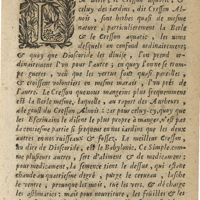 A Berle, le Cresson aquatic, &
celuy des jardins, dit Cresson Al-
nois, sont herbes quasi de mesme
nature & particulierement la Berle
& le Cresson aquatic, les noms
desquels on confond ordinairement;
& quoy que Dioscoride les divise, l'on prend or-
dinairement l'un pour l'autre; en quoy l'on ne se trom-
pe gueres, veu que les vertus sont quasi pareilles,
& croissent volontiers en mesme marais, l'un prés de
l'autre. Le Cresson que nous mangeons plus communément
est la Berle mesme, laquelle, au raport des Autheurs
a le goust du Cresson Alnois. Car pour celuy-cy, quoy que
les Escrivains le disent le plus propre à manger, n'est pas
la commise partie si frequent en nos jardins que les deux
autres en nos ruisseaux & fosses. Le meilleur Cresson,
au dire de Dioscoride, est le Babylonic. Ce Simple com-
me plusieurs autres, sert d'aliment & de medicament:
pour medicament, la semence tient le dessus, qui estant
chaude au quatriesme degré, purge le cerveau, lasche
le ventre, provoque les mois, tue les vers, & décharge
les asthmatics; mais pour nourriture, les fueilles & les